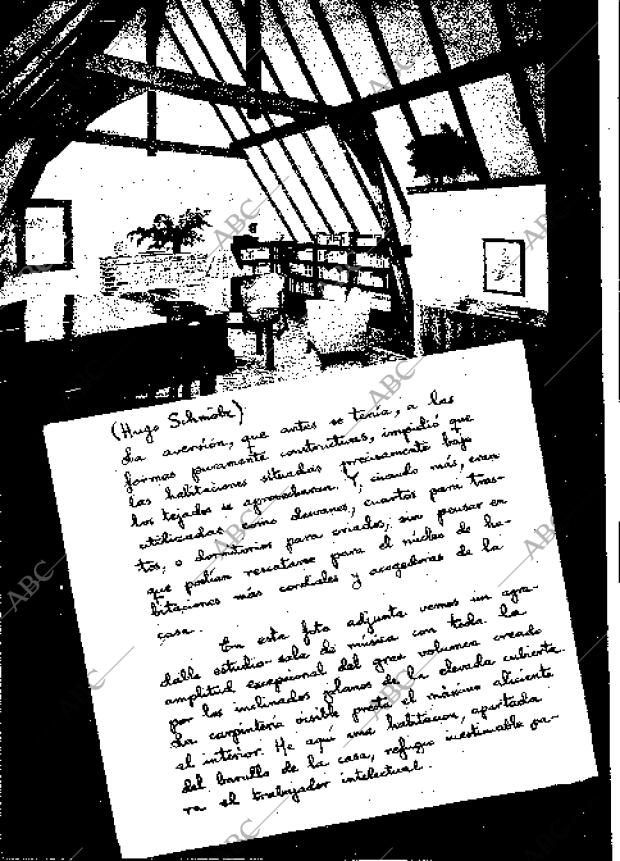 (Hugo Schmölz)
La aversión, que antes se tenía, a las
formas puramente constructivas, impidió que
las habitaciones situadas precisamente bajo
los tejados se aprovecharan. Y, cuando más, eran
utilizadas como desvanes, cuartos para tras-
tos, o dormitorios para criados; sin pensar en
que podían rescatarse para el núcleo de ha-
bitaciones más cordiales y acogedoras de la
casa.
En esta foto adjunta vemos un agra-
dable estudio-sala de música con toda la
amplitud excepcional del gran volumen creado
por los inclinados planos de la elevada cubierta.
La carpintería visible presta el máximo aliciente
al interior. He aquí una habitación, apartada
del barullo de la casa, refugio inestimable pa-
ra el trabajador intelectual.
ABC
ABC
ABC
ABC
ABC
ABC
ABC
ABC
ABC
ABC
ABC
ABC